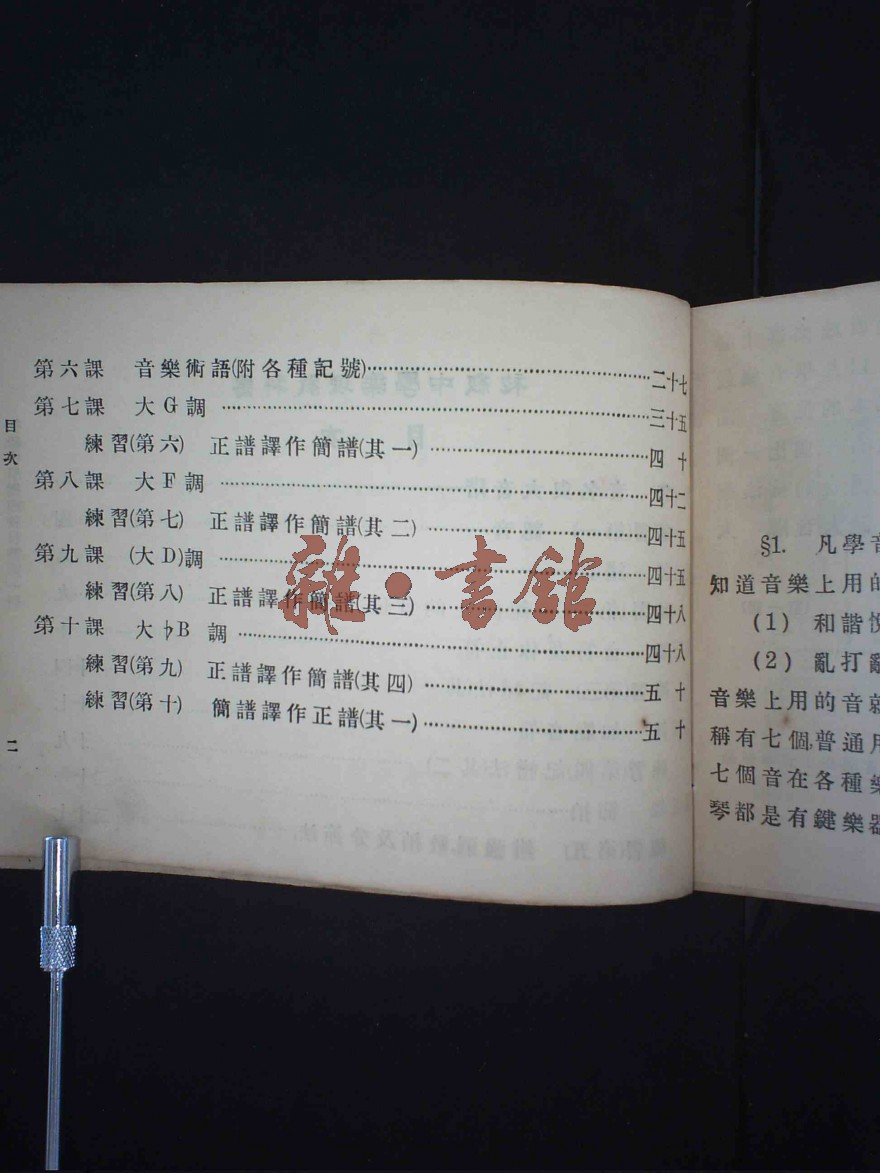 目次
第六課 音樂術語(附各種記號)……二十七
第七課 大G調……三十五
練習(第六) 正譜譯作簡譜(其一)……四十
第八課 大F調……四十二
練習(第七) 正譜譯作簡譜(其二)……四十五
第九課 (大D)調……四十五
練習(第八) 正譜譯作簡譜(其三)……四十八
第十課 大♭B調……四十八
練習(第九) 正譜譯作簡譜(其四)……五十
練習(第十) 簡譜譯作正譜(其一)……五十
二
雜•書館
§1. 凡學音
知道音樂上用的
(1) 和諧悅
(2) 亂打亂
音樂上用的音就
稱有七個,普通用
七個音在各種樂
琴都是有鍵樂器